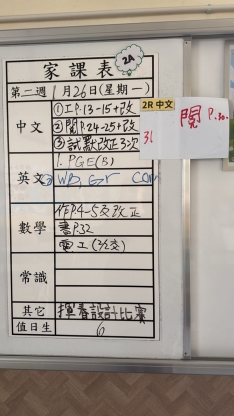 家課表
2A
第二週 1月26日(星期一)
中文
①工P.13-15+改
②閱P.24-25+改
③試默改正3次
2R 中文
閱 P.30-
31
英文
1. PGE(B)
② WB, Gr corr
數學
作P4-5交改正
書P.32
電工(3/2交)
常識
其它 揮春設計比賽
值日生 6